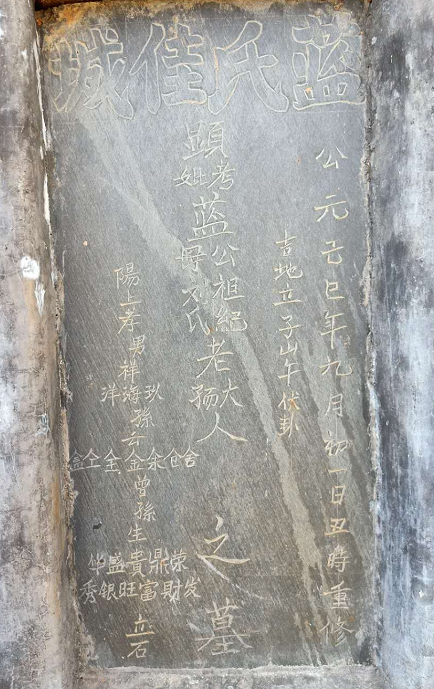 蓝氏佳城
公元己巳年九月初一日丑時重修
吉地立子山午伏卦
顯考妣蓝公祖紀老大人
母刘氏老孺人
之墓
陽上孝男祥海玖洋孫云
金曾孫生貴鼎荣
华盛
秀银旺富財发
立石